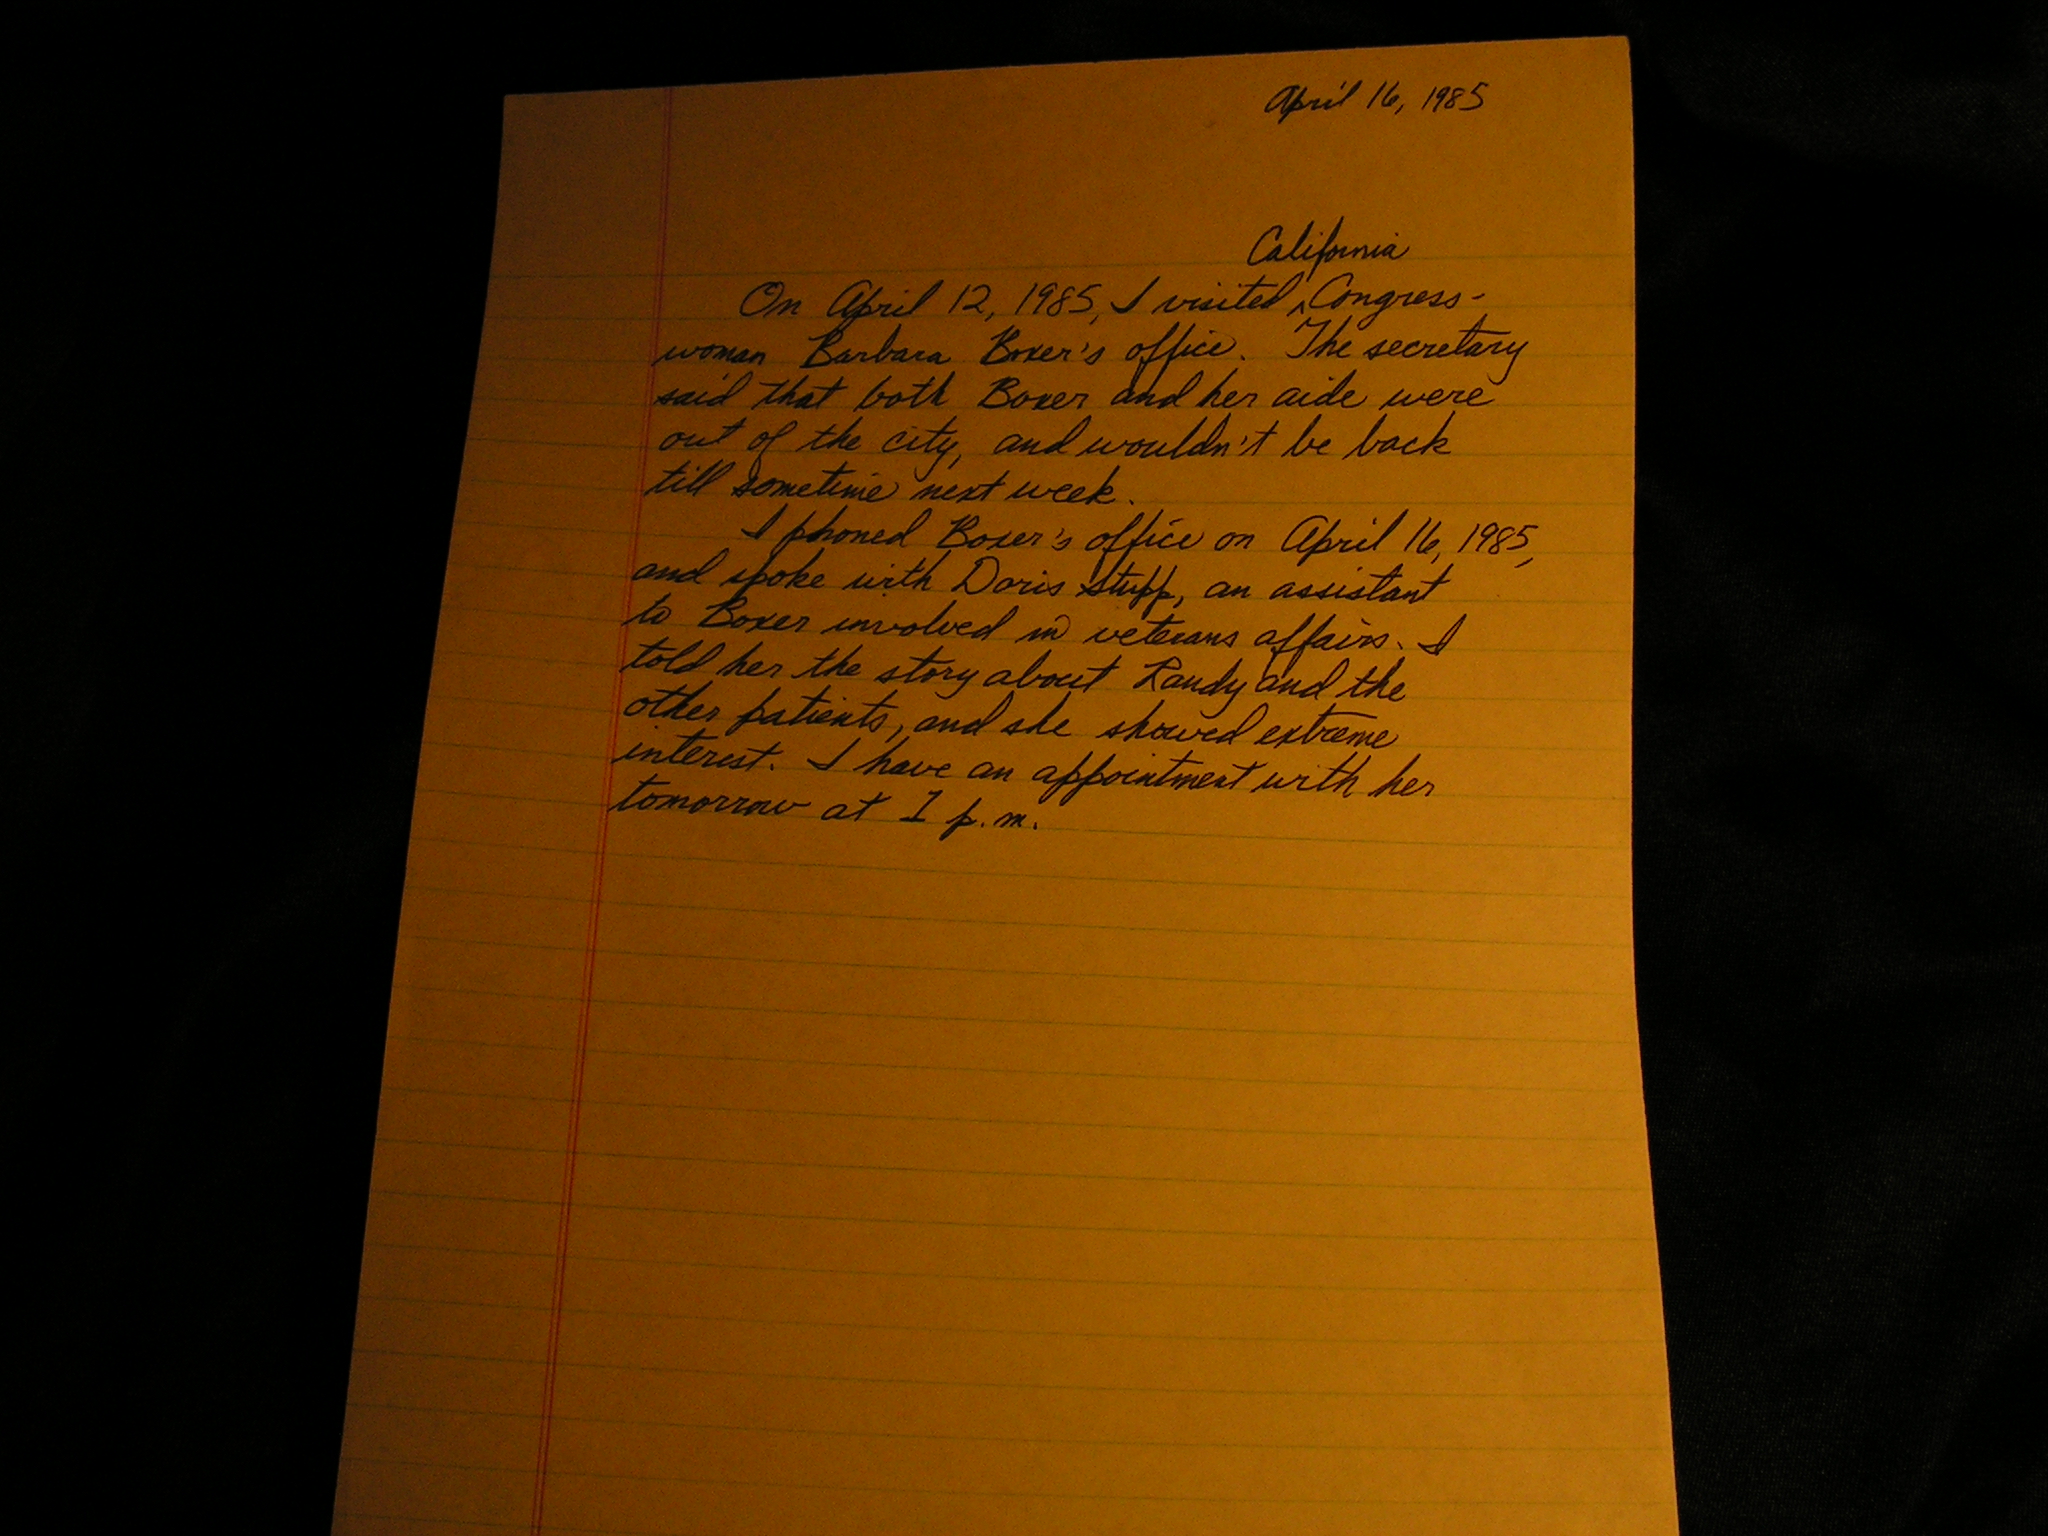 April 16, 1985
California
On April 12, 1985, I visited ^ Congress-
woman Barbara Boxer's office. The secretary
said that both Boxer and her aide were
out of the city, and wouldn't be back
till sometime next week.
I phoned Boxer's office on April 16, 1985,
and spoke with Doris Stupp, an assistant
to Boxer involved in veterans affairs. I
told her the story about Randy and the
other patients, and she showed extreme
interest. I have an appointment with her
tomorrow at 1 p.m.